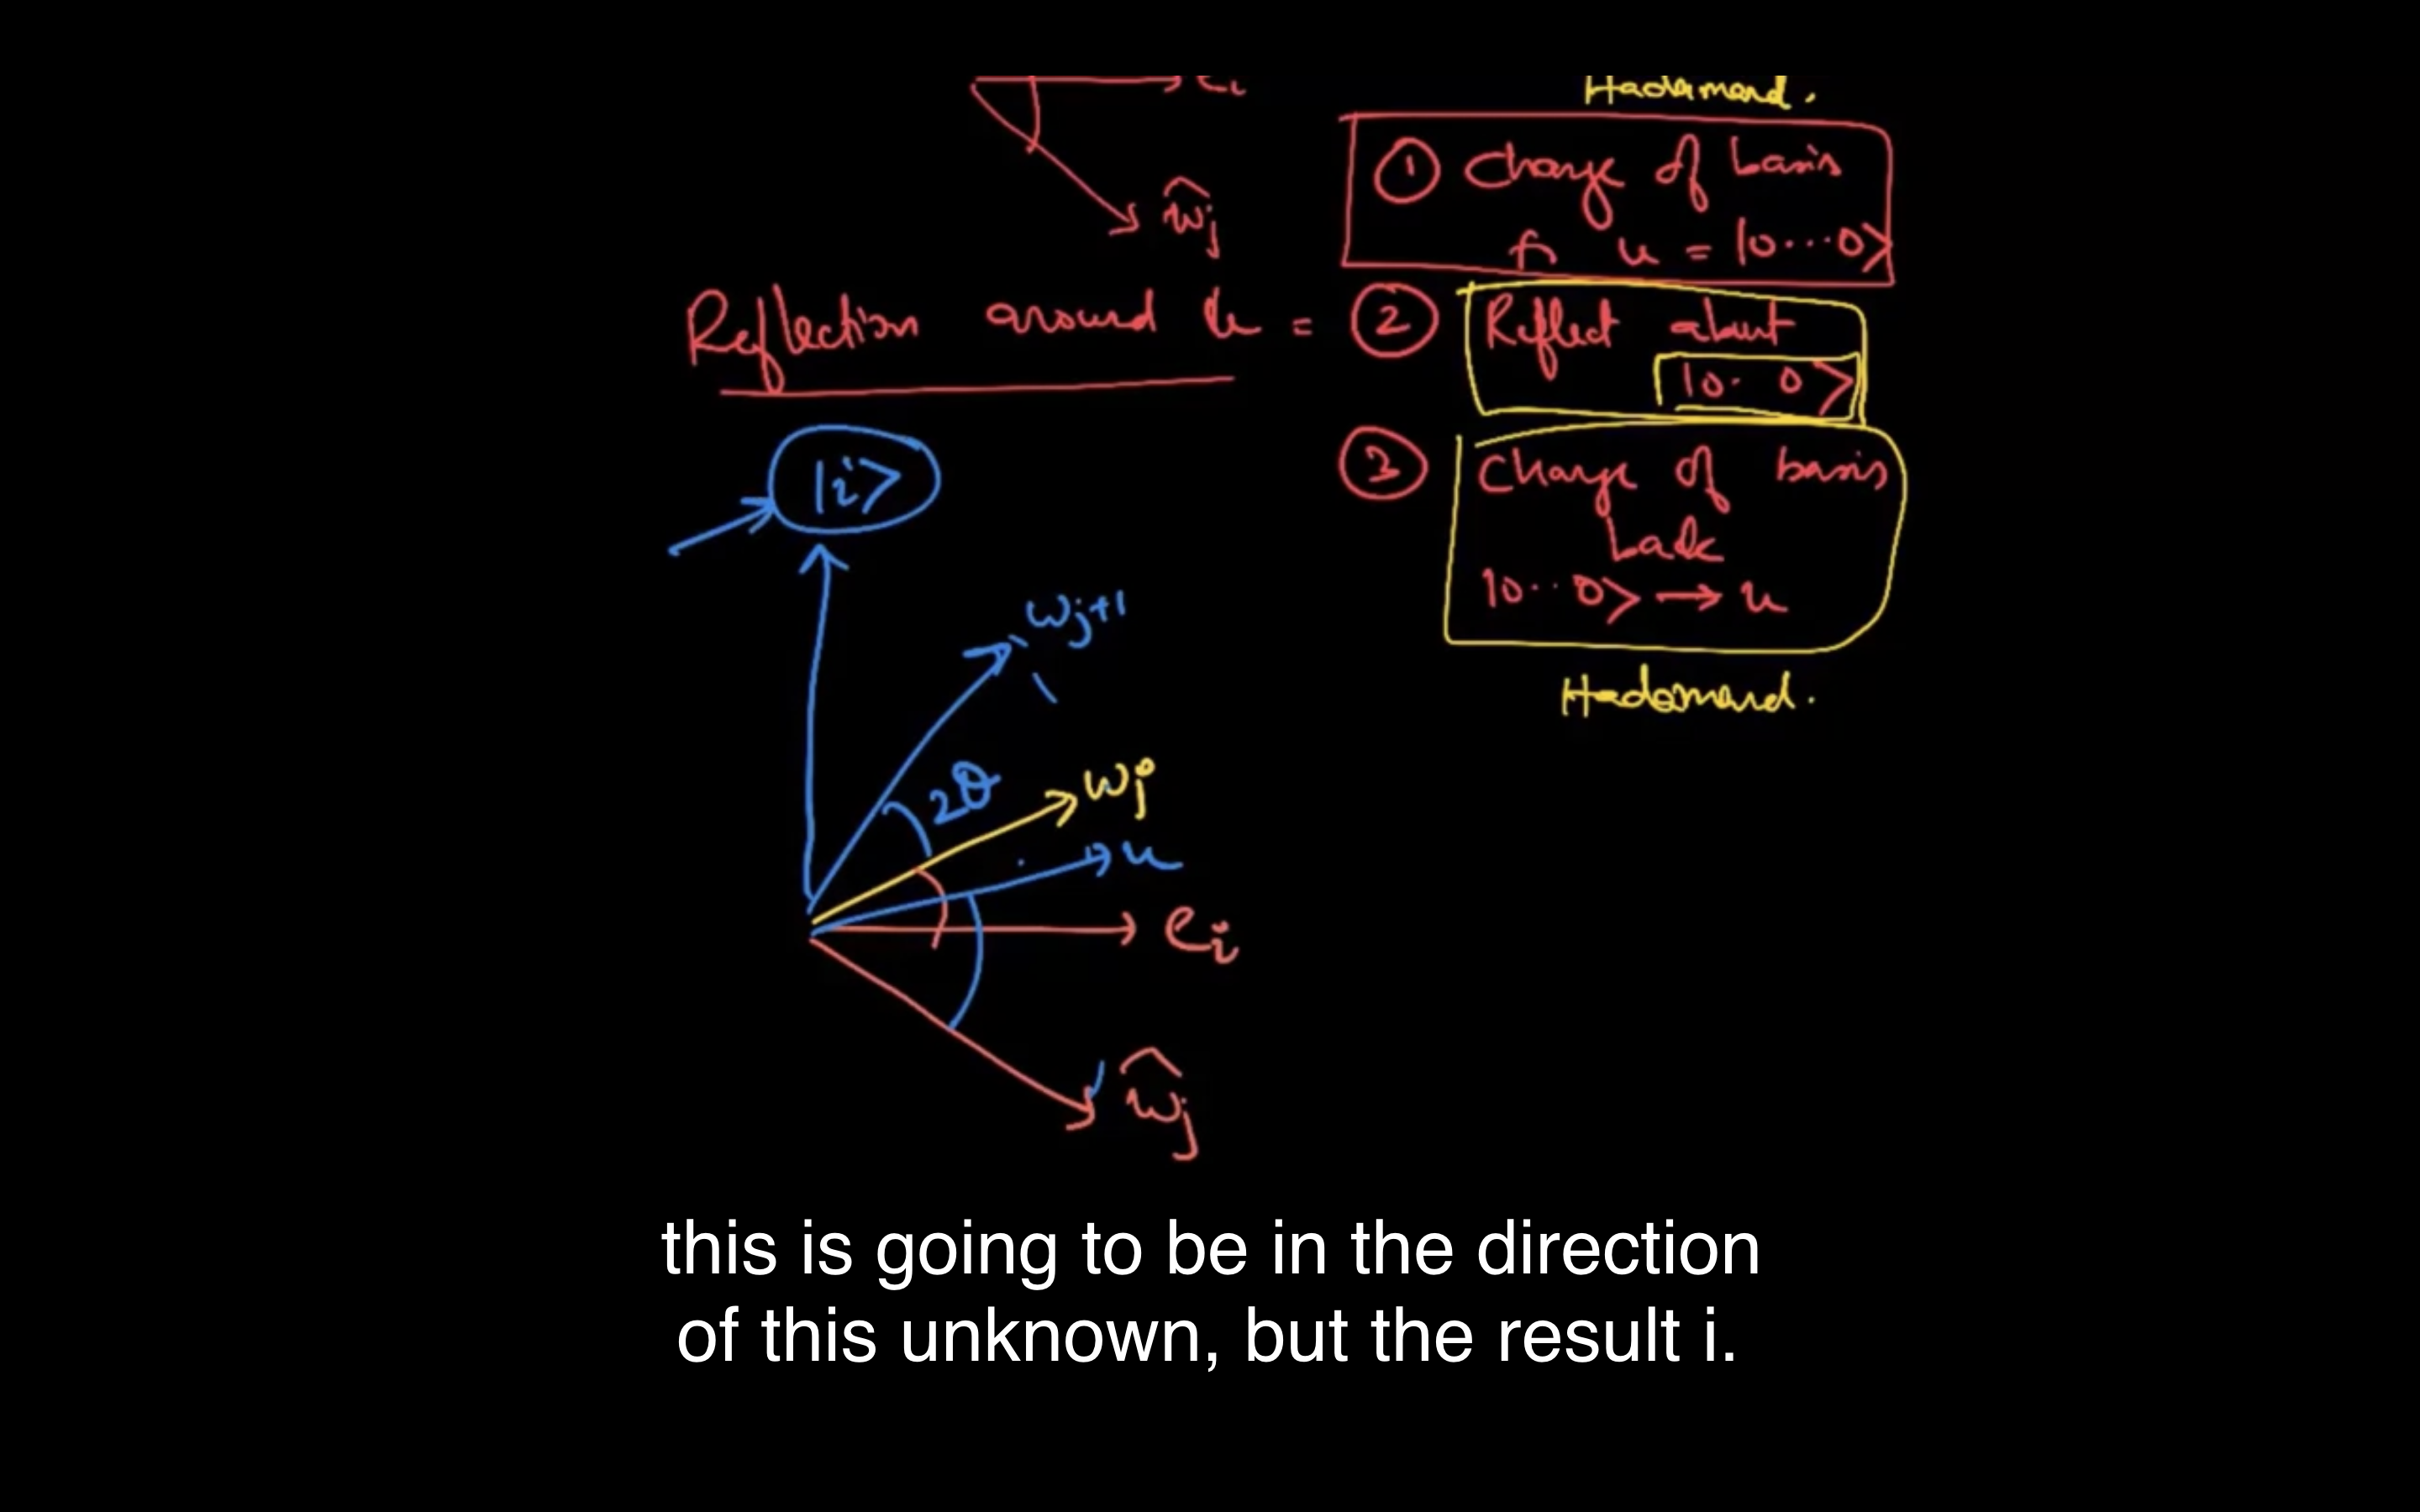 ei
Hadamard.
ŵj
① Change of basis
fn u = |0...0>
Reflection around u = ② Reflect about
|0. 0>
|i>
③ Change of basis
back
|0...0> → u
wj+1
Hadamard.
2θ
wj
u
ei
ŵj
this is going to be in the direction
of this unknown, but the result i.